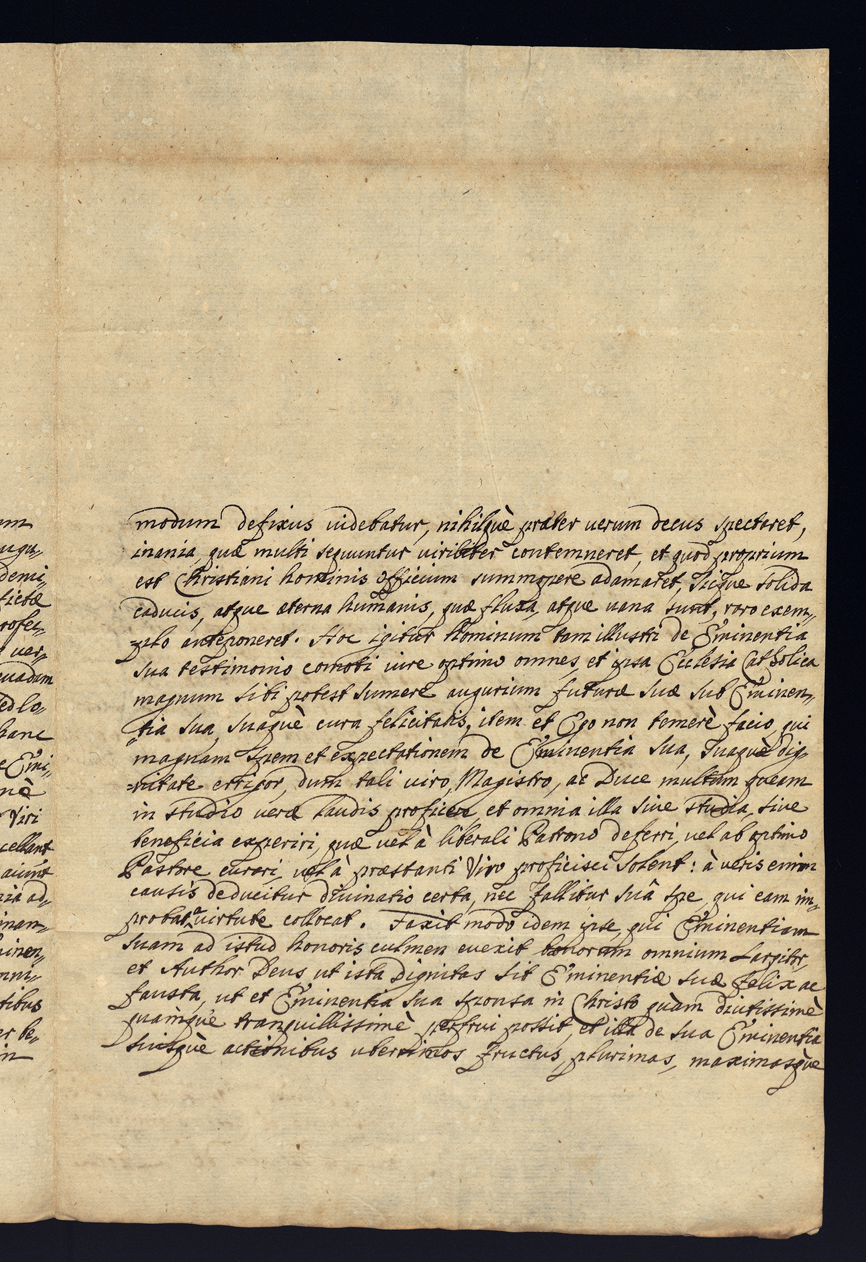 um
augu,,
demi,,
fictæ
rofec,,
var,,
quadam
ed lo,,
hanc
e Emi,,
nè
Viri
cellant
aiunt
ria ad,,
inan,,
inen,,
mni,,
tibus
er be,,
in
modum defixus videbatur, nihilquè præter verum decus spectaret,
inania, quæ multi sequuntur viriliter contemneret, et quod proprium
est Christiani hominis officium summopere adamaret, sicque solida
caducis, atque æterna humanis, quæ fluxa, atque vana sunt, raro exem,,
plo anteponeret. Hoc igitur hominum tam illustri de Eminentia
sua testimonio comoti iure optimo omnes, et ipsa Ecclesia Catholica
magnum sibi potest sumere augurium futuræ suæ sub Eminen,,
tia sua, suaquè cura felicitatis, item et Ego non temerè facio, qui
magnam spem et expectationem de Eminentia sua, suaquè dig,,
nitate errigor, dum tali viro, Magistro, ac Duce multum queam
in studio veræ laudis proficere, et omnia illa sive studia, sive
beneficia experiri, quæ vel à liberali Patrono deferri, vel ab optimo
Pastore curari, vel à præstanti Viro proficisci solent: à veris enim
causis deducitur divinatio certa, nec fallitur suâ spe, qui eam in
probata virtute collocat. Faxit modo idem ipse, qui Eminentiam
suam ad istud honoris culmen evexit bonorum omnium Largitor,
et Author Deus, ut ista dignitas sit Eminentiæ suæ felix ac
fausta, ut et Eminentia sua sponsa in Christo quàm diutissimè
quamquè tranquillissimè perfrui possit, et illa de sua Eminentia
suisquè actionibus uberrimos fructus, plurimas, maximasquè